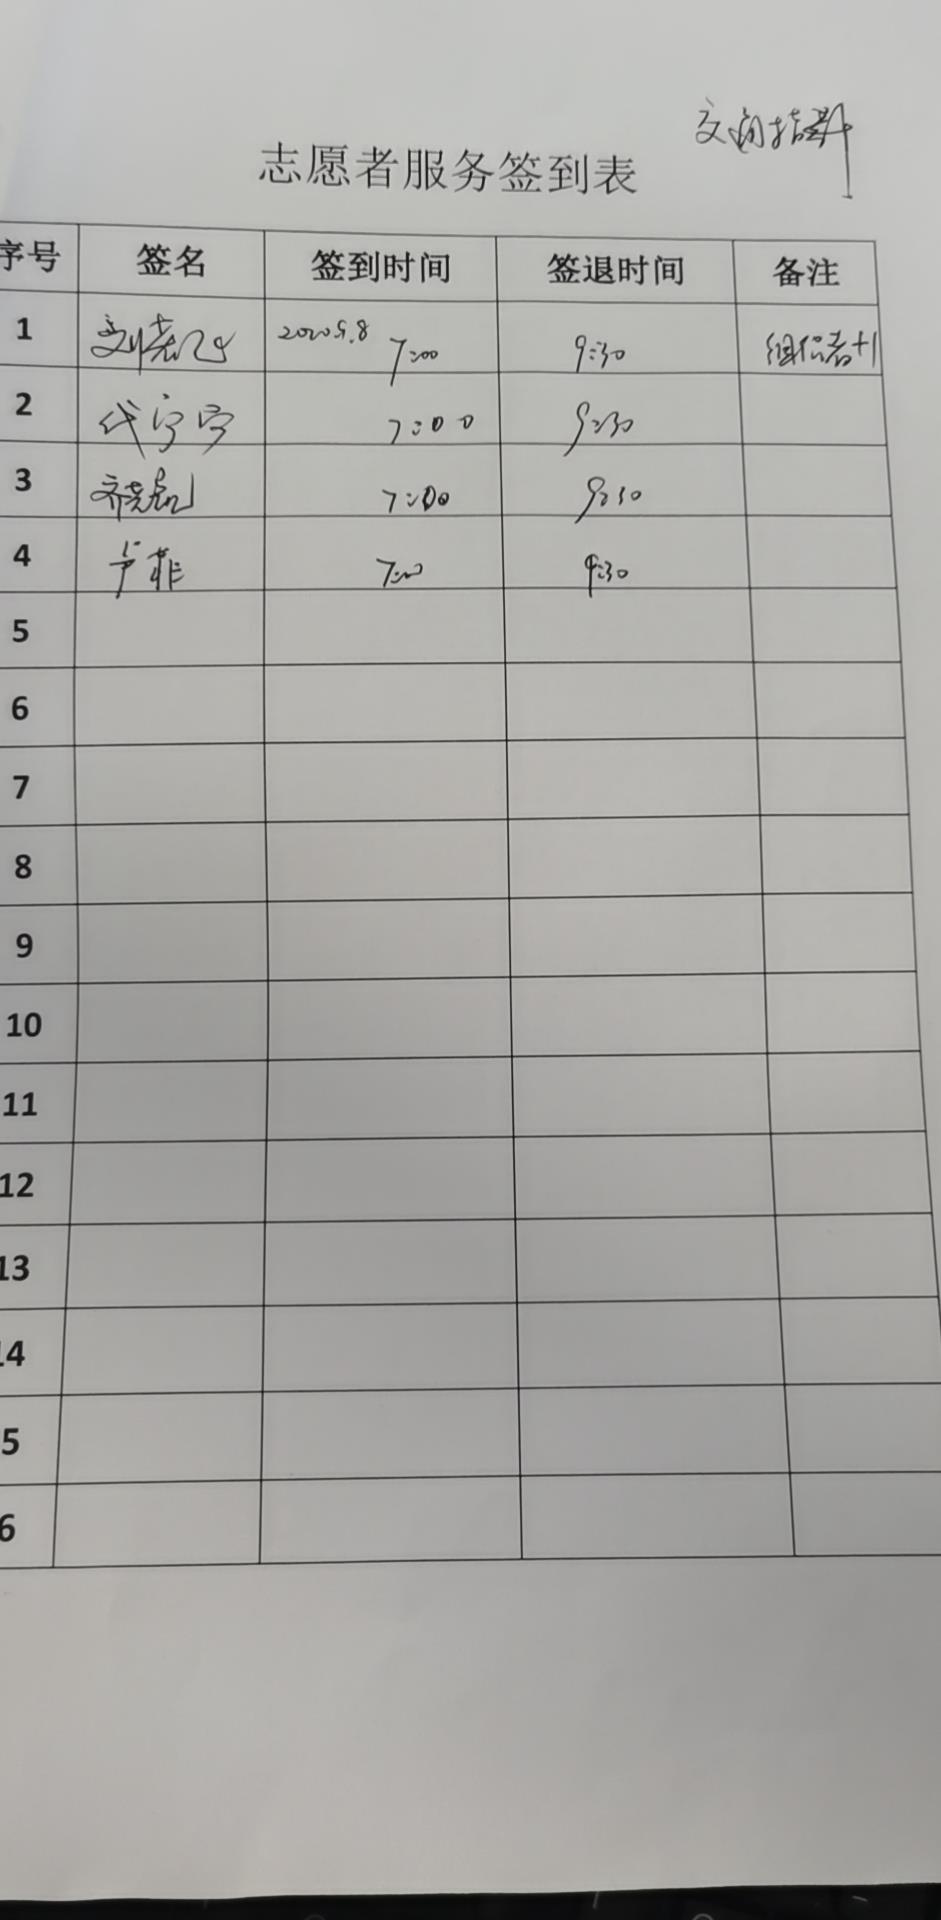 志愿者服务签到表
序号 签名 签到时间 签退时间 备注
1 2020.9.8 7:00 9:30 组织者+1
2 代宁宁 7:00 9:30
3 7:00 9:30
4 卢菲 7:00 9:30
5
6
7
8
9
10
11
12
13
14
5
6